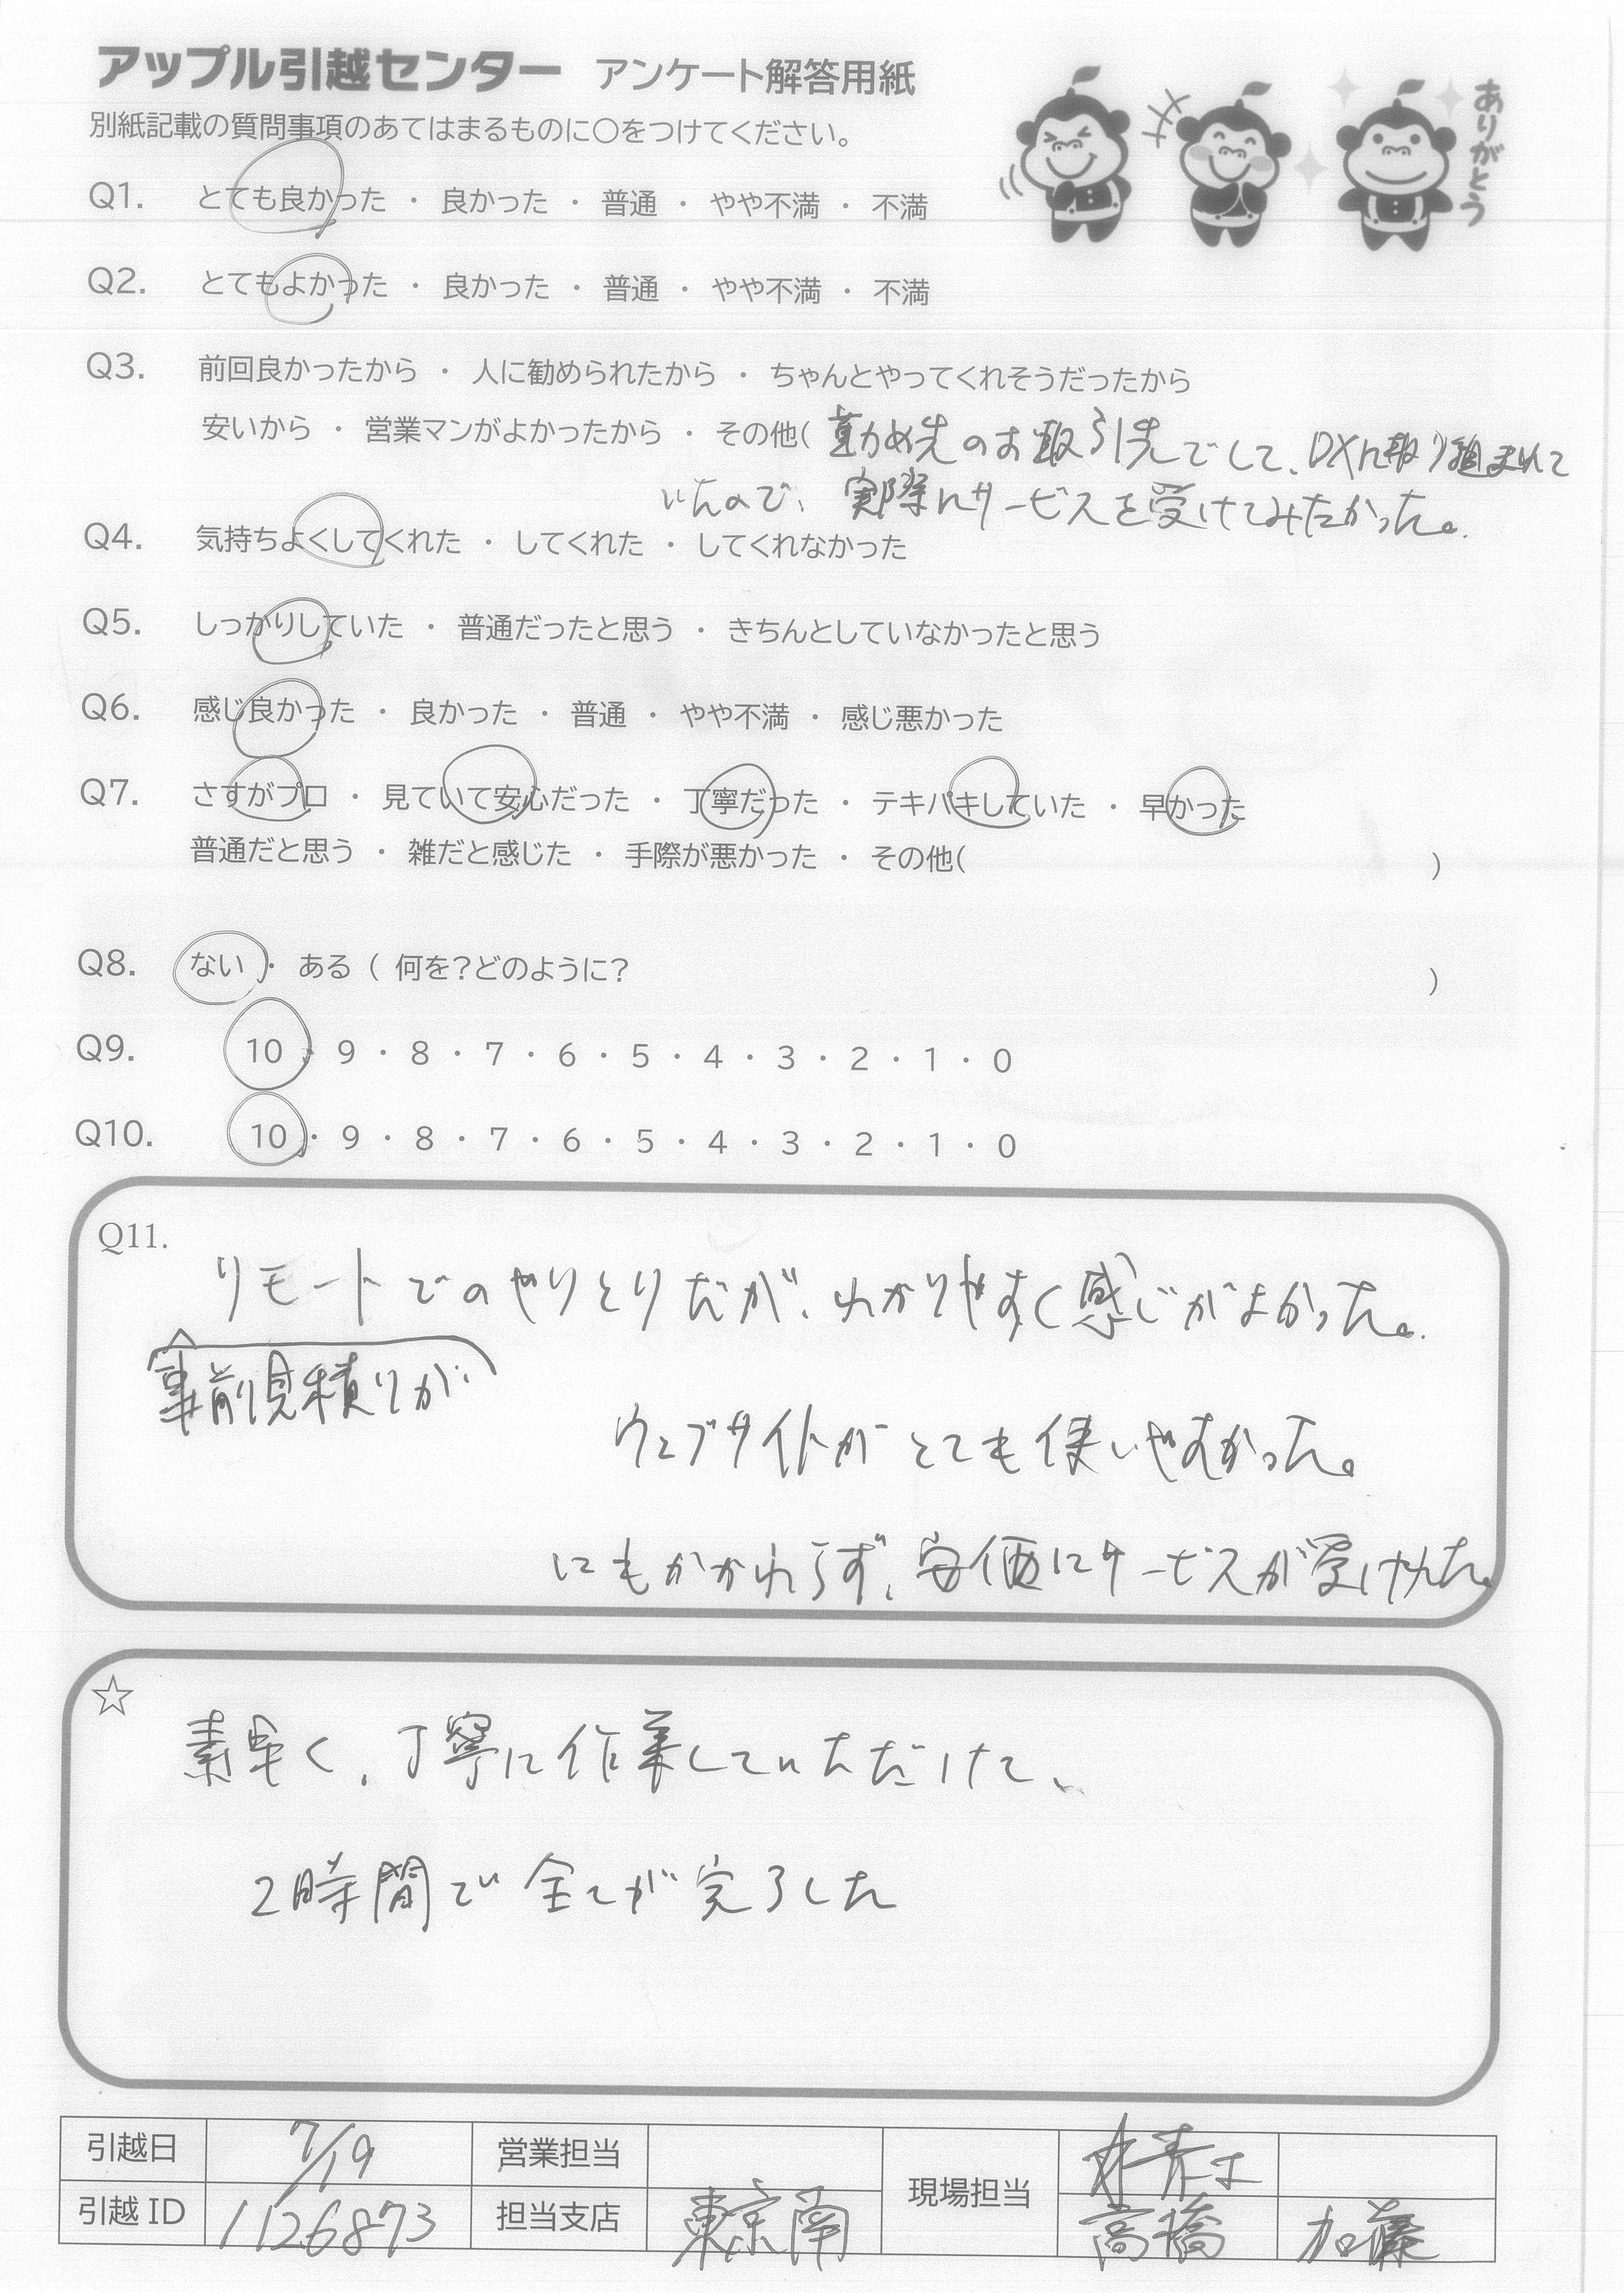 アップル引越センター アンケート解答用紙
ありがとう
別紙記載の質問事項のあてはまるものに〇をつけてください。
Q1. とても良かった ・ 良かった ・ 普通 ・ やや不満 ・ 不満
Q2. とてもよかった ・ 良かった ・ 普通 ・ やや不満 ・ 不満
Q3. 前回良かったから ・ 人に勧められたから ・ ちゃんとやってくれそうだったから
安いから ・ 営業マンがよかったから ・ その他( 勤め先のお取引先でして、DXに取り組まれて
いたので、実際にサービスを受けてみたかった。
Q4. 気持ちよくしてくれた ・ してくれた ・ してくれなかった
Q5. しっかりしていた ・ 普通だったと思う ・ きちんとしていなかったと思う
Q6. 感じ良かった ・ 良かった ・ 普通 ・ やや不満 ・ 感じ悪かった
Q7. さすがプロ ・ 見ていて安心だった ・ 丁寧だった ・ テキパキしていた ・ 早かった
普通だと思う ・ 雑だと感じた ・ 手際が悪かった ・ その他( )
Q8. ない ・ ある ( 何を?どのように? )
Q9. 10 ・ 9 ・ 8 ・ 7 ・ 6 ・ 5 ・ 4 ・ 3 ・ 2 ・ 1 ・ 0
Q10. 10 ・ 9 ・ 8 ・ 7 ・ 6 ・ 5 ・ 4 ・ 3 ・ 2 ・ 1 ・ 0
Q11.
リモートでのやりとりだが、わかりやすく感じがよかった。
事前見積りが
ウェブサイトがとても使いやすかった。
にもかかわらず、安価にサービスが受けれた。
☆
素早く、丁寧に作業していただけて、
2時間で全てが完了した
引越日 7/19 営業担当 現場担当
引越 ID 1126873 担当支店 東京南 高橋 加藤